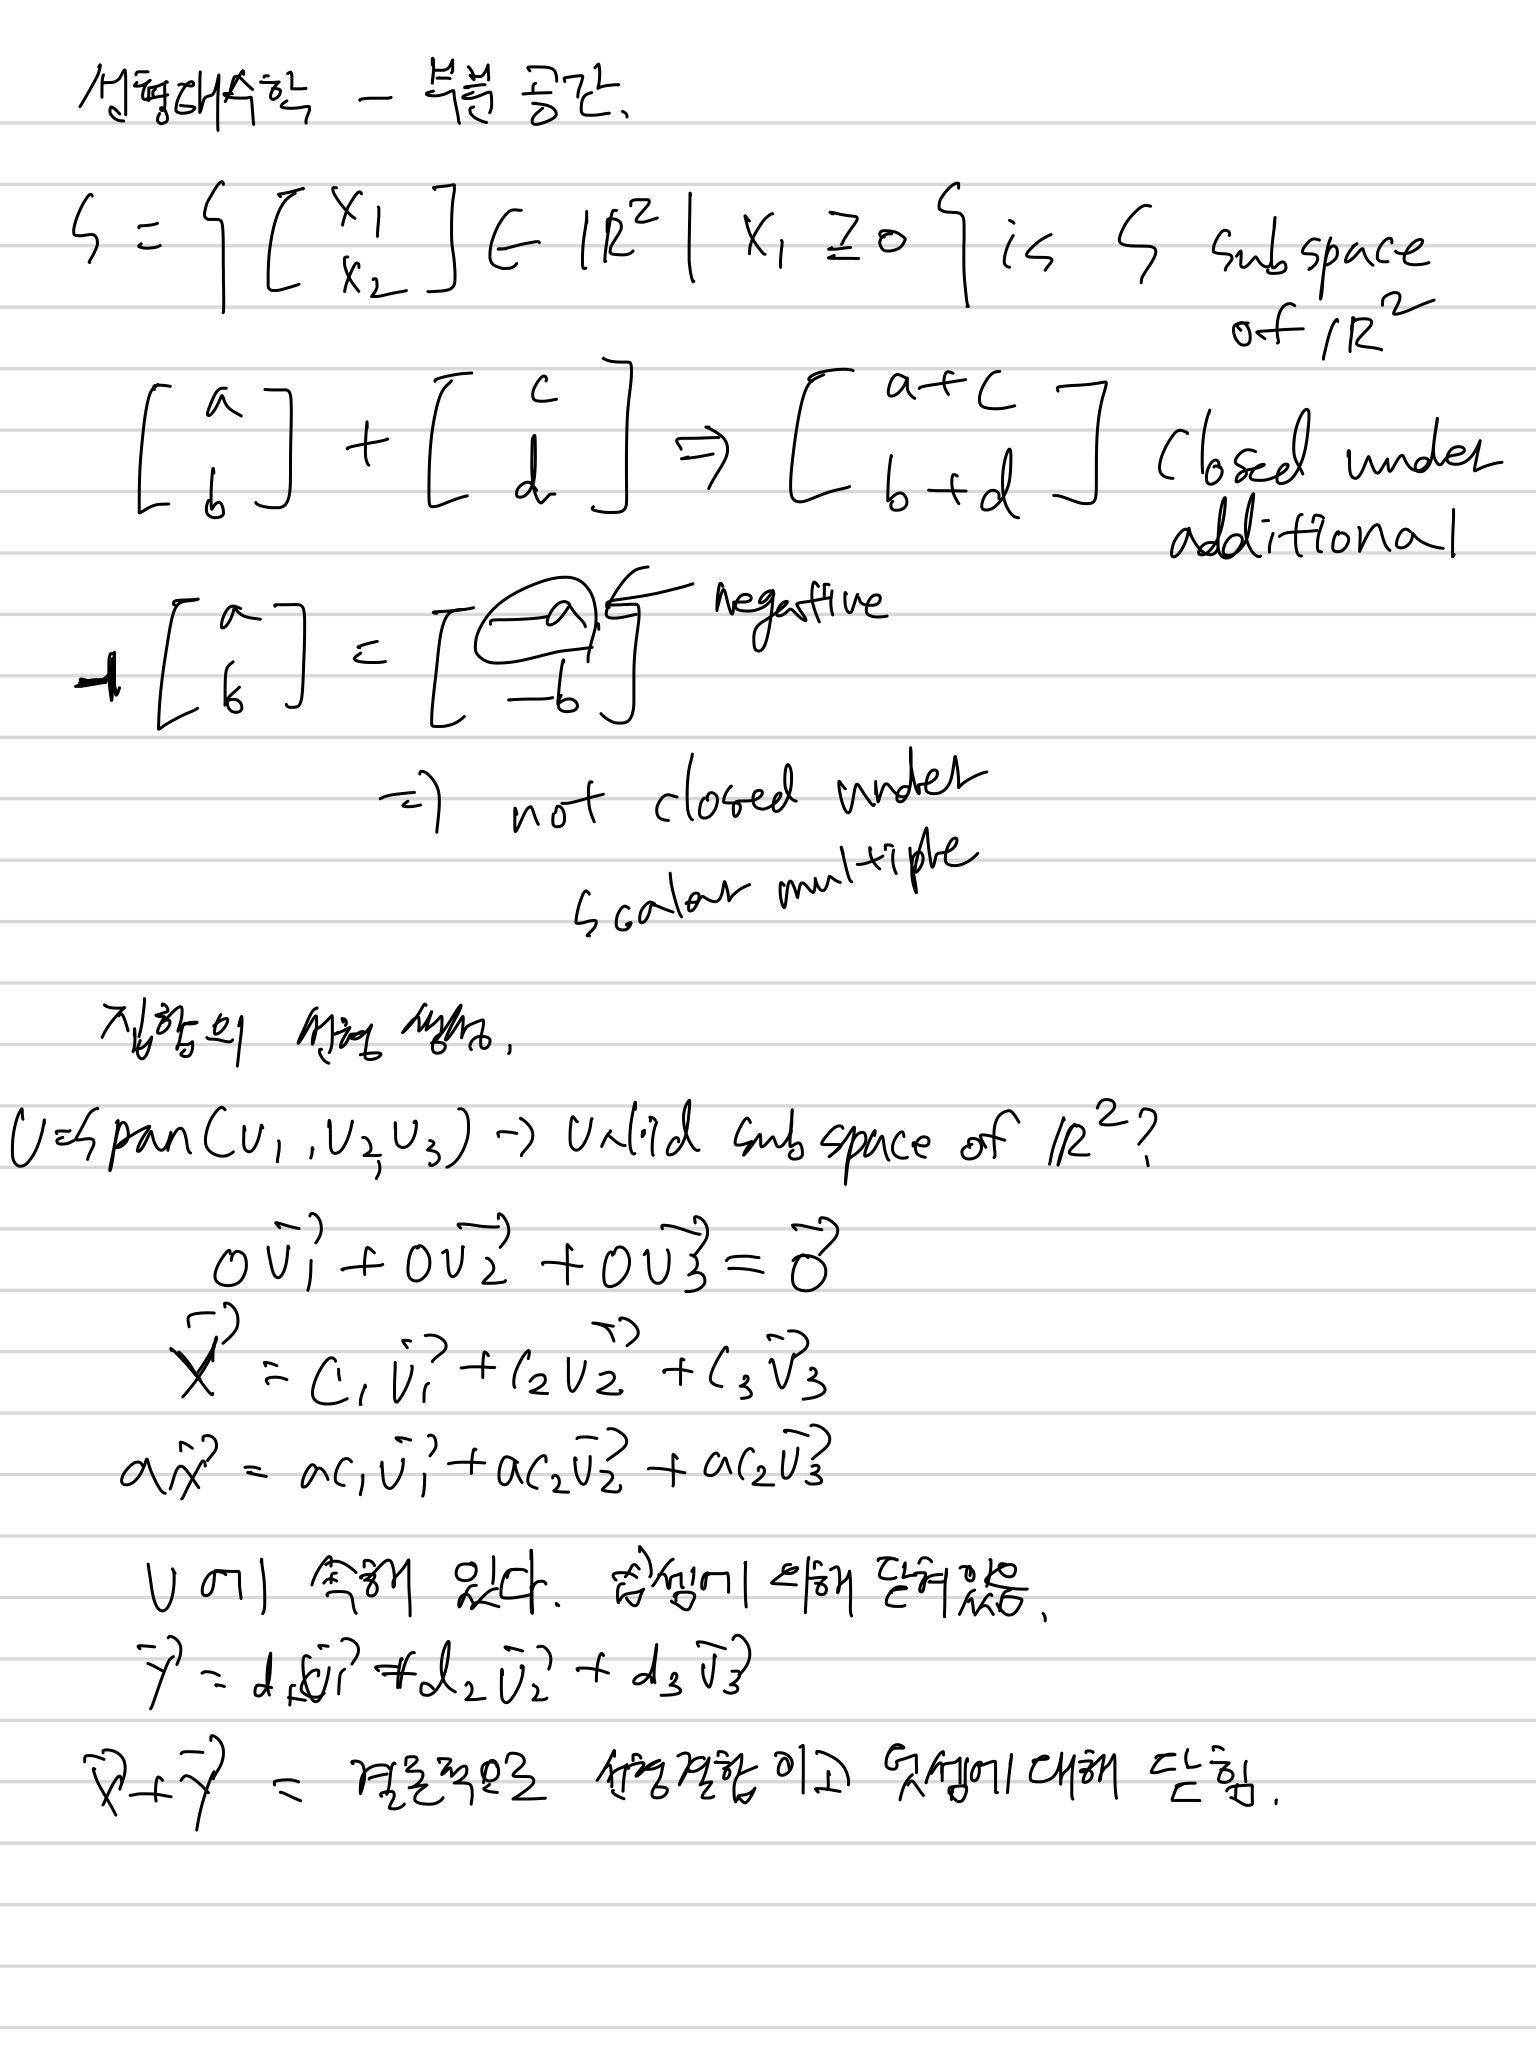 선형대수학 - 부분 공간.
S = { [x₁ x₂] ∈ ℝ² | x₁ ≥ 0 } is S subspace
of ℝ²
[a b] + [c d] ⇒ [a+c b+d] closed under
additional
-1 [a b] = [-a -b] ← negative
⇒ not closed under
scalar multiple
집합의 선형 생성.
U=span(v₁, v₂, v₃) → valid subspace of ℝ²?
0v⃗₁ + 0v⃗₂ + 0v⃗₃ = 0⃗
x⃗ = c₁v⃗₁ + c₂v⃗₂ + c₃v⃗₃
ax⃗ = ac₁v⃗₁ + ac₂v⃗₂ + ac₂v⃗₃
U에 속해 있다. 곱셈에 의해 닫혀있음.
y⃗ = d₁v⃗₁ + d₂v⃗₂ + d₃v⃗₃
x⃗+y⃗ = 결론적으로 선형결합이고 덧셈에 대해 닫힘.